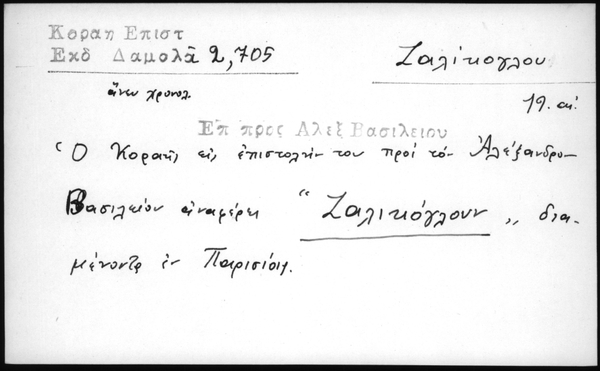 Κοραη Επιστ
Εκδ Δαμολᾶ 2,705
Ζαλίκογλου
ἄνευ χρονολ.
19. αἰ.
Επ προς Αλεξ Βασιλειου
Ὁ Κοραῆς εἰς ἐπιστολήν του πρός τόν Ἀλέξανδρον
Βασιλείου ἀναφέρει "Ζαλικόγλουν„ δια-
μένοντα ἐν Παρισίοις.